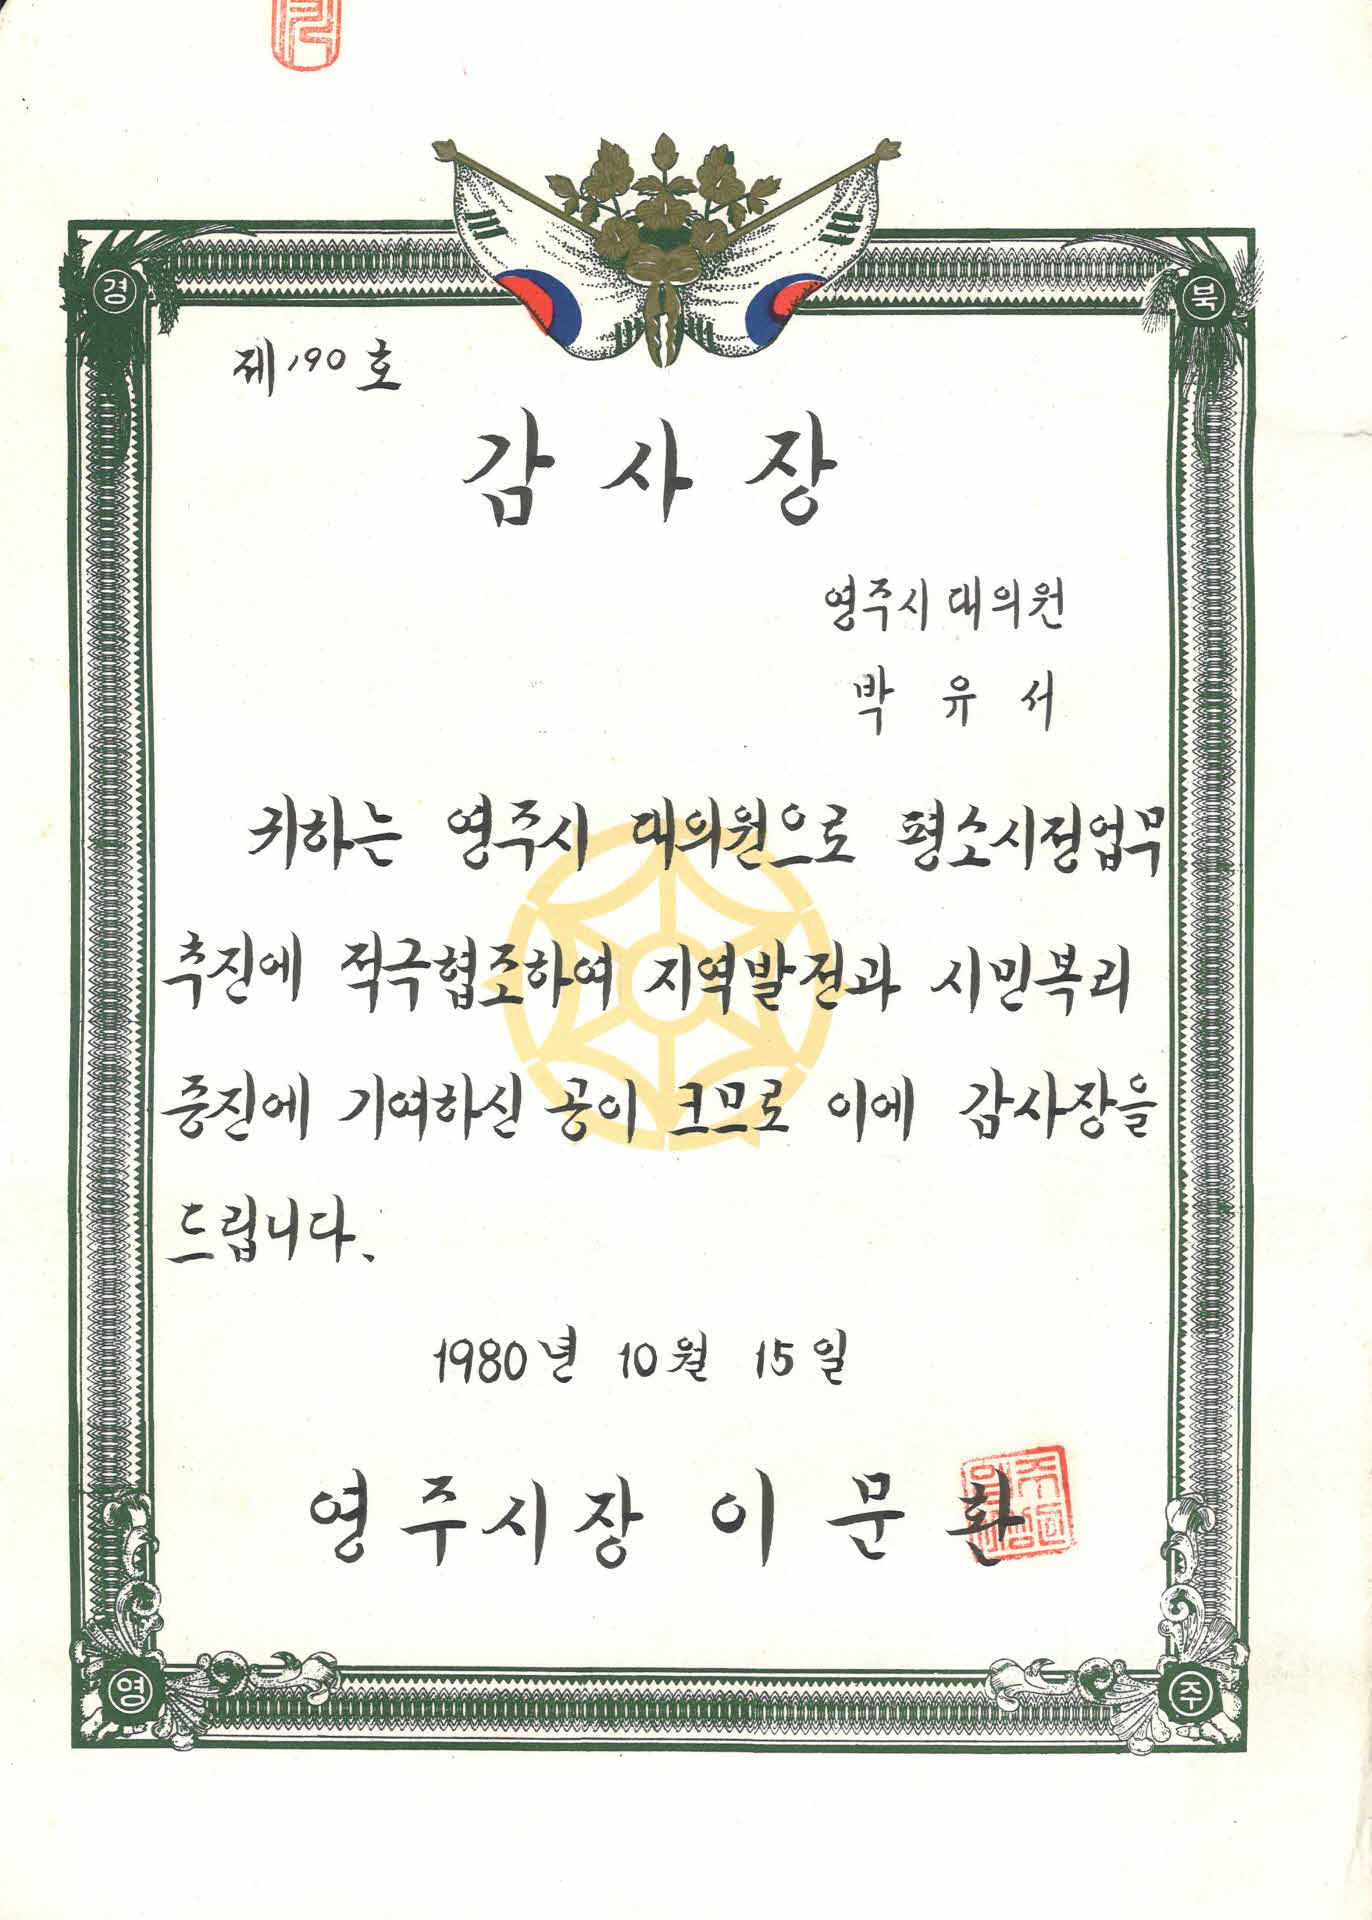 경
북
제190호
감사장
영주시 대의원
박유서
귀하는 영주시 대의원으로 평소시정업무
추진에 적극협조하여 지역발전과 시민복리
증진에 기여하신 공이 크므로 이에 감사장을
드립니다.
1980년 10월 15일
영주시장 이문환
영
주